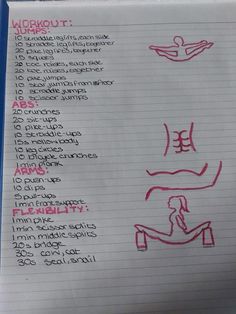 WORKOUT:
JUMPS:
10 straddle leg lifts, each side
10 straddle leg lifts, together
20 pike leg lifts, together
15 squats
20 toe raises, each side
20 toe raises, together
10 pike jumps
10 star jumps from floor
10 straddle jumps
10 scissor jumps
ABS:
20 crunches
20 sit-ups
10 pike-ups
10 straddle-ups
15s hollow body
10 leg circles
10 bicycle crunches
1 min plank
ARMS:
10 push-ups
10 dips
5 pull-ups
1 min front support
FLEXIBILITY:
1 min pike
1 min scissor splits
1 min middle splits
20s bridge
30s cow, cat
30s seal, snail